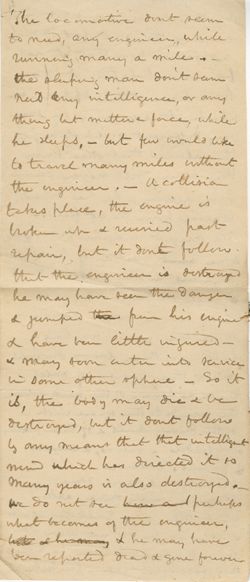 The locomotive dont seem
to need, any engineer, while
running many a mile. -
the sleeping man dont seem
need any intelligence, or any
thing but matter & force, while
he sleeps, - but few would like
to travel many miles without
the engineer. - A collision
takes place, the engine is
broken up & ruined past
repair, but it dont follow
that the engineer is destroyed
he may have seen the danger
& jumped from his engine
& have been little injured -
& may soon enter into service
in some other sphere - So it
is, the body may die & be
destroyed, but it dont follow
by any means that that intelligent
mind which has directed it so
many years is also destroyed. -
we do not see perhaps
what becomes of the engineer,
& he may have
been reported dead & gone forever